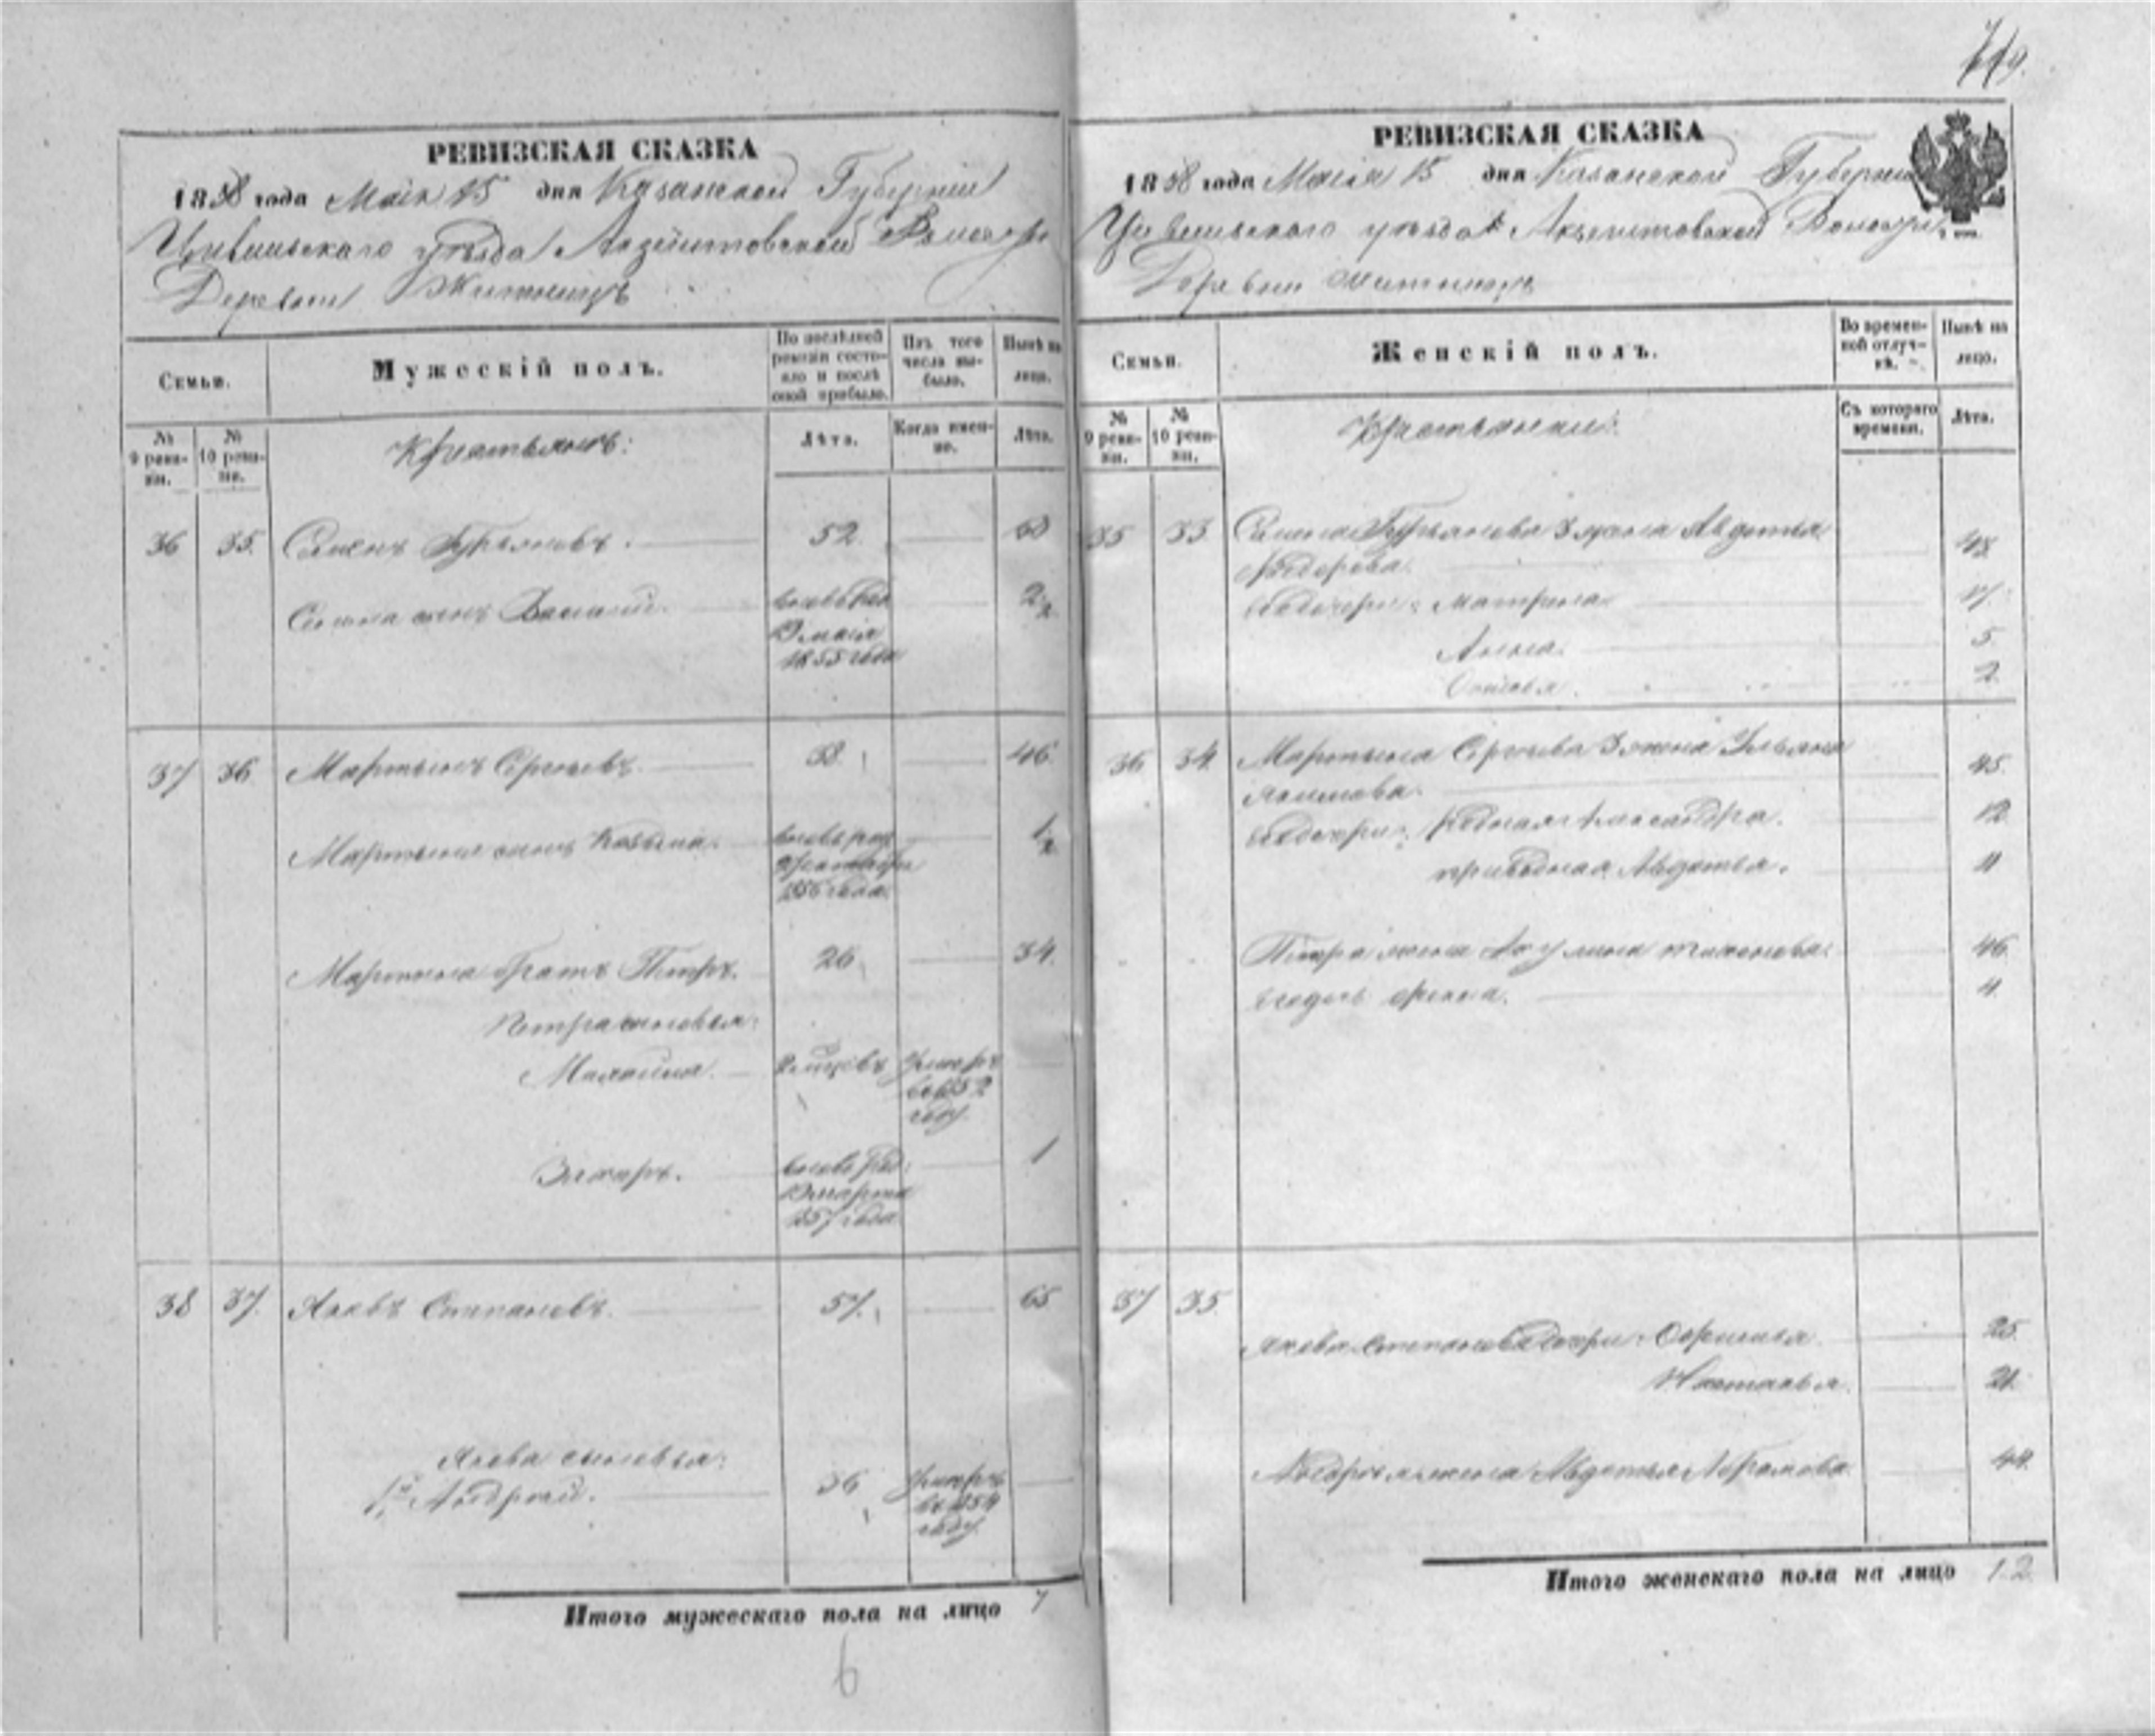 РЕВИЗСКАЯ СКАЗКА
1858 года Маія 15 дня Казанской Губерніи
Цивильскаго уѣзда
Деревни Житницъ
Семьи.
Мужескій полъ.
По послѣдней ревизіи состояло и послѣ оной прибыло.
Изъ того числа выбыло.
Нынѣ на лицо.
№ 9 ревизіи.
№ 10 ревизіи.
Крестьянъ:
Лѣта.
Когда именно.
Лѣта.
36 35. Семенъ Гурьяновъ. 52. 60
Семена сынъ Василій. 2½
вновь рож
маія
1855 года
37 36. Мартынъ Сергѣевъ. 38. 46.
Мартына сынъ Козьма. 1½
вновь рож
1856 года
Мартына братъ Петръ. 26. 34.
Петра сыновья:
умеръ
въ 1852
году.
Захаръ. 1
вновь рож:
марта
1857 года.
38 37. Яковъ Степановъ. 57. 65
Якова сыновья:
1й Андрей. 36
умеръ
въ 1854
году.
Итого мужескаго пола на лицо 7
6
719.
РЕВИЗСКАЯ СКАЗКА
1858 года Маія 15 дня Казанской Губерніи
Цивильскаго уѣзда
Деревни Житницъ
Семьи.
Женскій полъ.
Во временной отлучкѣ.
Нынѣ на лицо.
№ 9 ревизіи.
№ 10 ревизіи.
Съ котораго времени.
Лѣта.
35 33. Семена Гурьянова жена Авдотья 48.
Ѳедорова.
дочери: Матрина 17.
Анна. 5.
2.
36 34. Мартына Сергѣева жена Ульяна 45.
Якимова.
дочери: родная Александра. 12
приводная Авдотья. 11
Петра жена Акулина 46.
4.
37 35.
Якова Степанова дочери: 25.
Настасья. 21.
Андрея жена Авдотья Абрамова. 44.
Итого женскаго пола на лицо 12